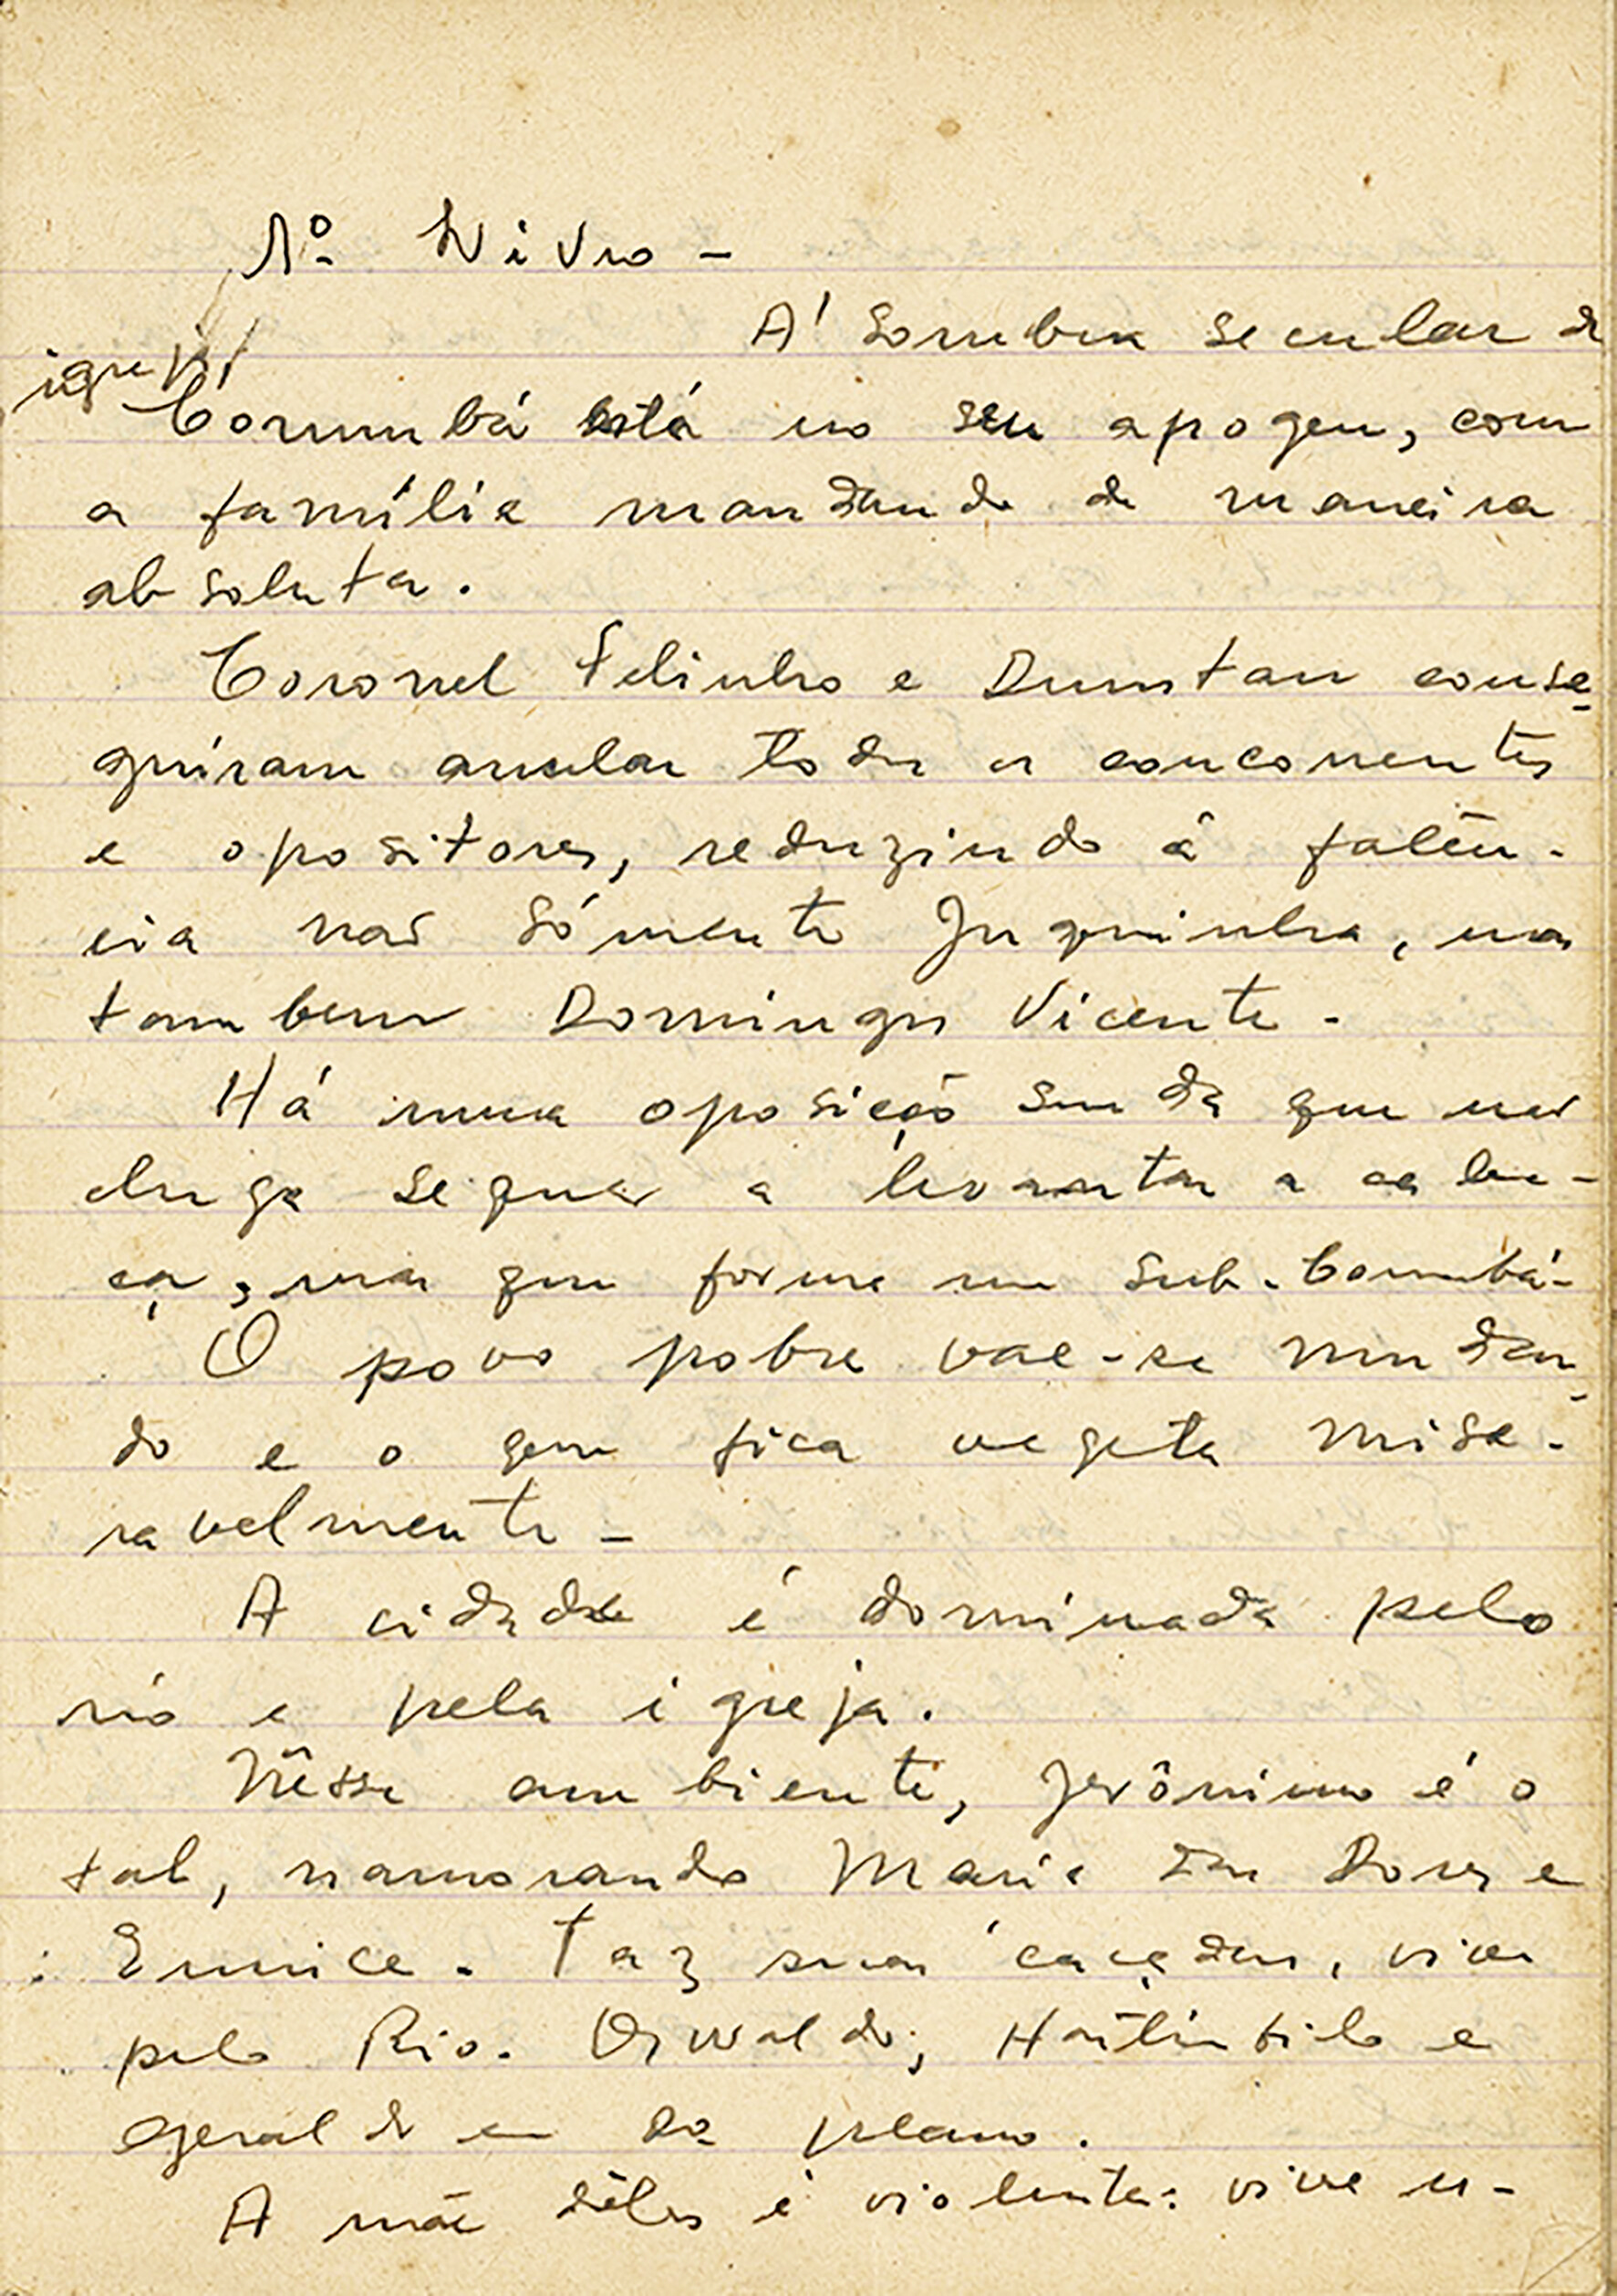 1º Livro -
A' sombra secular da
igreja
Corumbá está no seu apogeu, com
a família mandando de maneira
absoluta.
Coronel Felinho e Dunstan conse
guíram anular todos os concorrentes
e opositores, reduzindo á falên-
cia não sómente Juquinha, mas
tambem Domingos Vicente.
Há uma oposição surda que não
chega sequer a levantar a cabe-
ça, mas que forma um sub-Corumbá-
O povo pobre vae-se mudan
do e o que fica vegeta mise-
ravelmente -
A cidade é dominada pelo
rio e pela igreja.
Nêsse ambiente, Jerônimo é o
tal, namorando Maria das Dores e
Eunice. Faz suas caçadas, vive
pelo Rio. Oswaldo,
Geraldo em plano.
A mãe dêles é violenta: vive